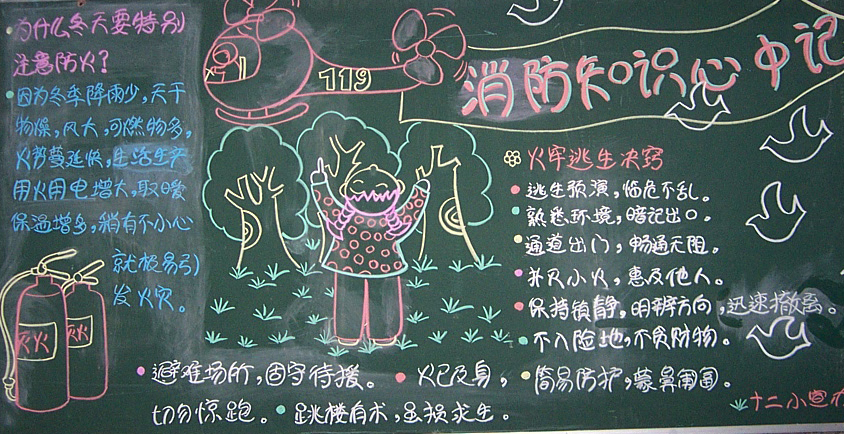 消防知识心中记
119
为什么冬天要特别
注意防火?
因为冬季降雨少,天干
物燥,风大,可燃物多,
火势蔓延快,生活生产
用火用电增大,取暖
保温增多,稍有不小心
就极易引
发火灾。
灭火
灭火
火牢逃生决窍
逃生预演,临危不乱。
熟悉环境,暗记出口。
通道出门,畅通无阻。
扑灭小火,惠及他人。
保持镇静,明辨方向,迅速撤离。
不入险地,不贪财物。
避难场所,固守待援。 火已及身,
简易防护,蒙鼻匍匐。
切勿惊跑。 跳楼有术,虽损求生。
十二小宣